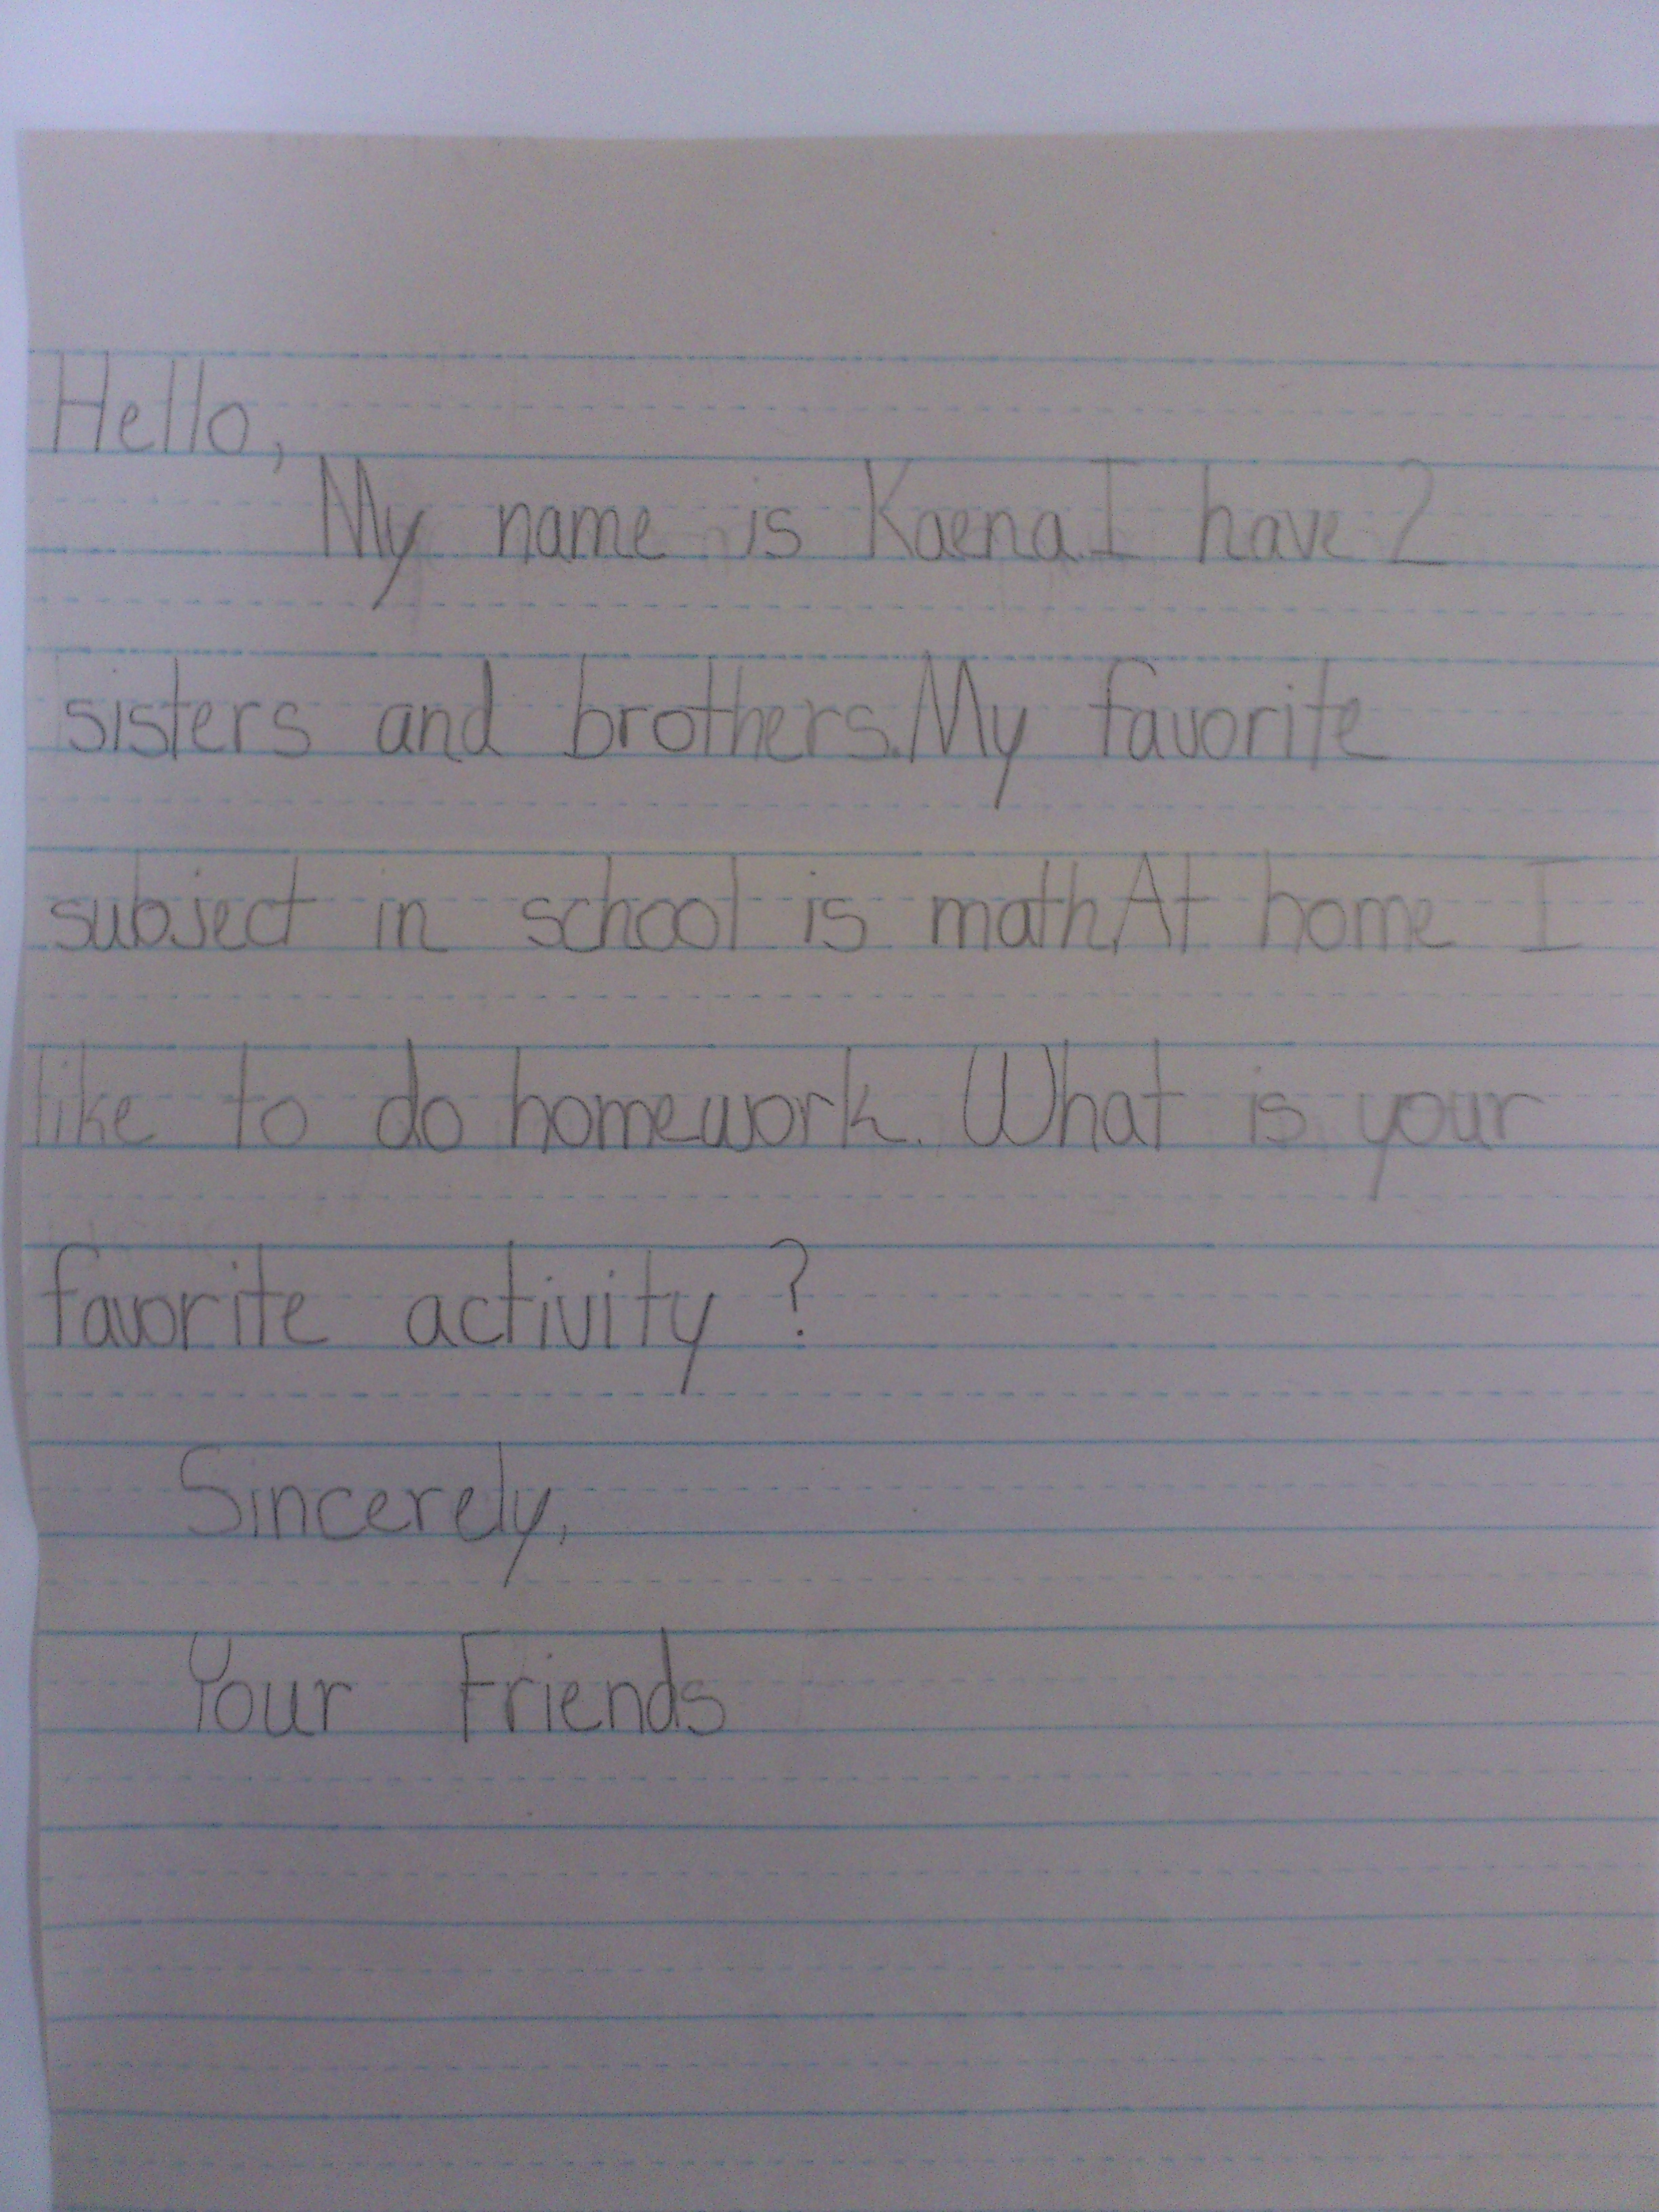 Hello,
My name is Kaena. I have 2
sisters and brothers. My favorite
subject in school is math. At home I
like to do homework. What is your
favorite activity ?
Sincerely,
Your Friends